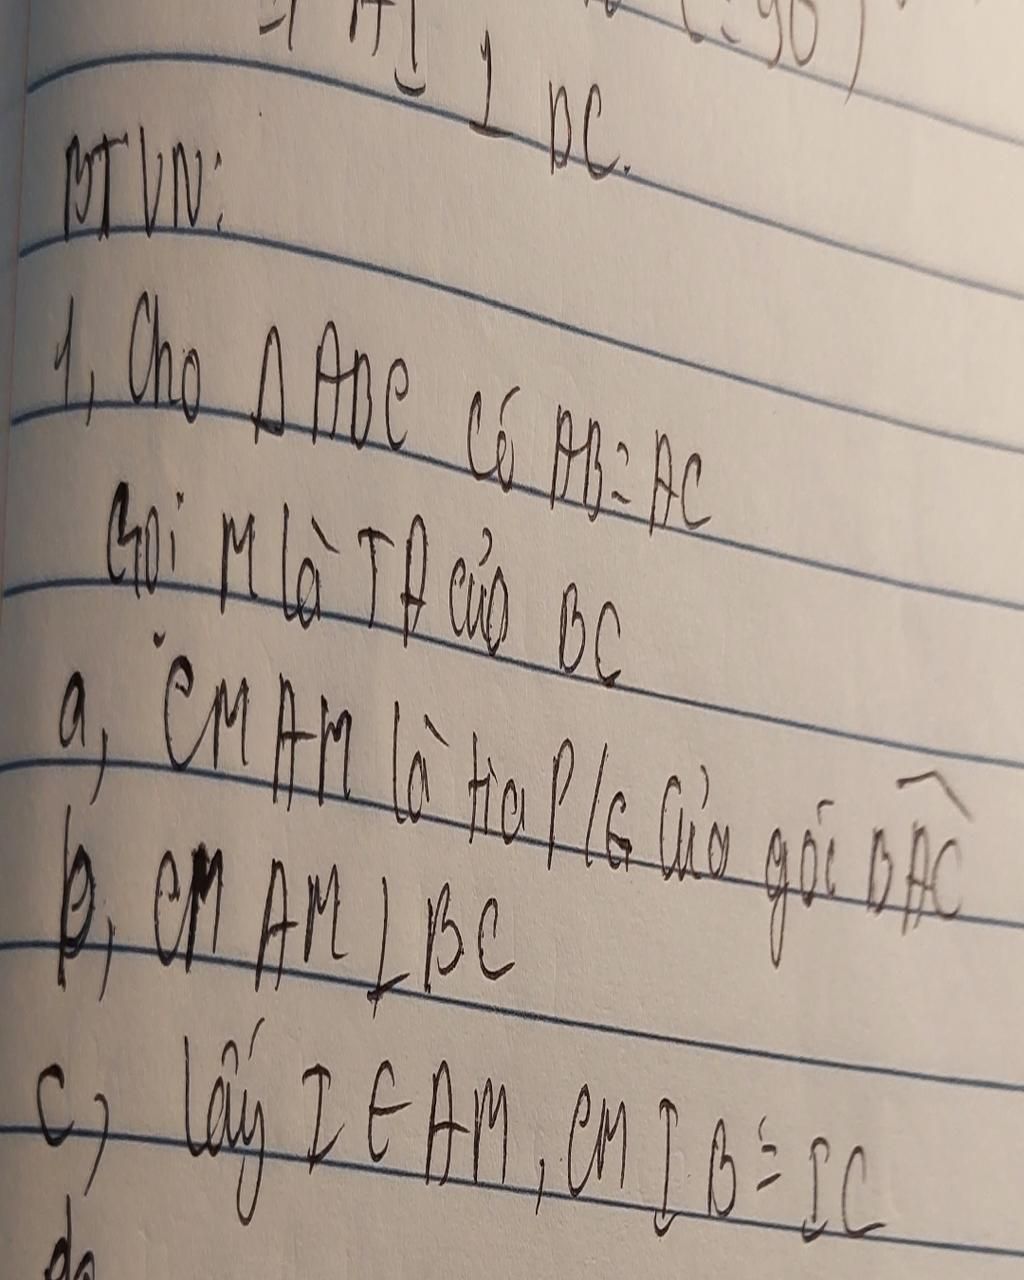 ⊥ DC.
BTVN:
1, Cho Δ ABC có AB = AC
Gọi M là TĐ của BC
a, CM AM là tia P/G của góc BAC
b, CM AM ⊥ BC
c, lấy I ∈ AM, CM IB = IC